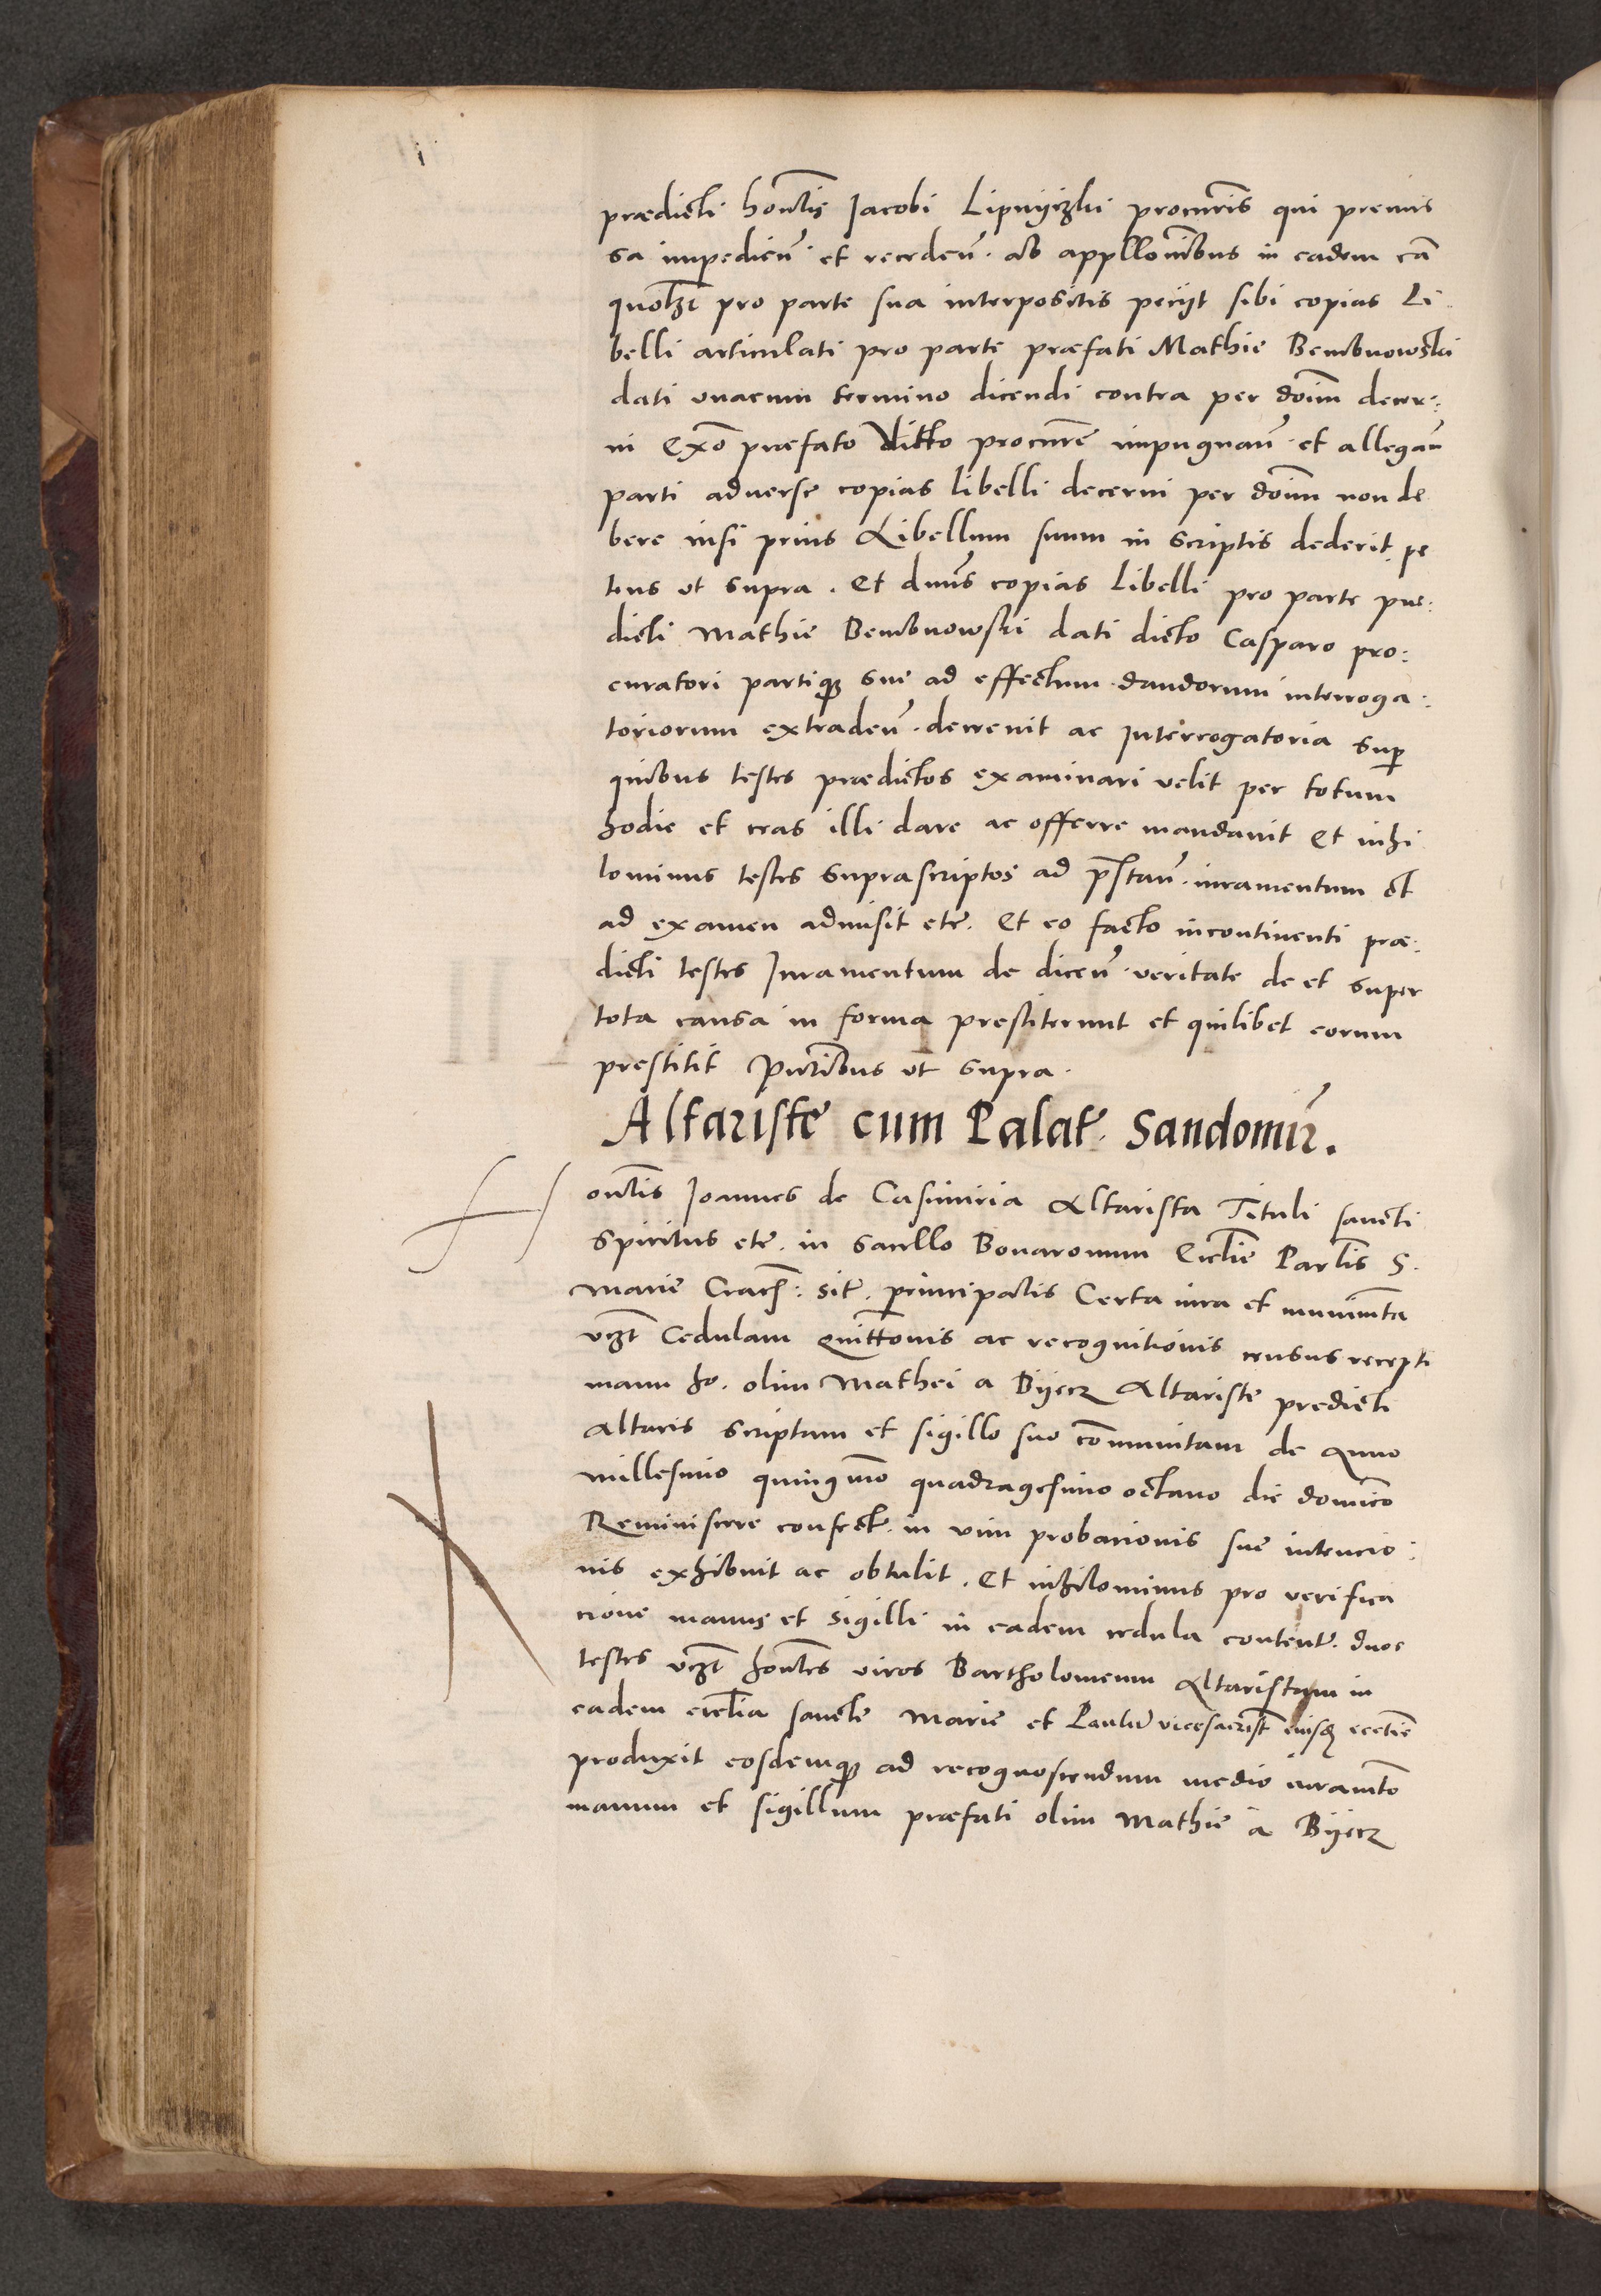 prædicti hon̄tis Jacobi Lipnyczki procur̄is qui premis
sa impedien̄. et receden̄. ab appllonībus in eadem cā
quolz̄t pro parte sua interpositis pecijt sibi copias Li
belli articulati pro parte præfati Mathie Bembnowski
dati vnacum termino dicendi contra per doīm decer:
ni Exō præfato ditto procurē impugnan̄. et allegan̄
parti adverse copias libelli decerni per doīm non de
bere nisi prius Libellum suum in scriptis dederit pe
tens vt supra. Et dnūs copias Libelli pro parte præ:
dicti Mathie Bembnowski dati dicto Casparo pro:
curatori partiqʒ sue ad effectum dandorum interroga:
toriorum extraden̄. decrevit ac Interrogatoria sup̄
quibus testes prædictos examinari velit per totum
hodie et cras illi dare ac offerre mandavit Et nihi
lominus testes suprascriptos ad p̄stan̄. iuramentum et
ad examen admisit etc̄. Et eo facto incontinenti præ:
dicti testes Iuramentum de dicen̄. veritate de et super
tota causa in forma prestiterunt et quilibet eorum
prestitit Pntībus vt supra.
Altariste cum Palat̄. Sandomir̄.
Hon̄tis Joannes de Casimiria Altarista Tituli sancti
Spiritus etc̄. in sacello Bonaronum Eccl̄ie Parl̄is S.
Marie Crac̄: sit̄. principalis Certa iura et munimn̄ta
vz̄t Cedulam Quittōnis ac recognitionis census recepti
manu ho. olim Mathei a Byecz Altariste predicti
Altaris scriptam et sigillo suo cōmunitam de Anno
millesimo quingmō quadragesimo octavo die domīco
Reminiscere confect̄. in vim probacionis sue intencio:
nis exhibuit ac obtulit. Et nihilominus pro verifica
cione manus et sigilli in eadem cedula content̄. duos
testes vz̄t hon̄tes viros Bartholomeum Altaristam in
eadem eccl̄ia sancte Marie et Paulū vicesacrist̄ eiusq̄ eccl̄ie
produxit eosdemqʒ ad recognoscendum medio iuramn̄to
manum et sigillum præfati olim Mathie a Byecz